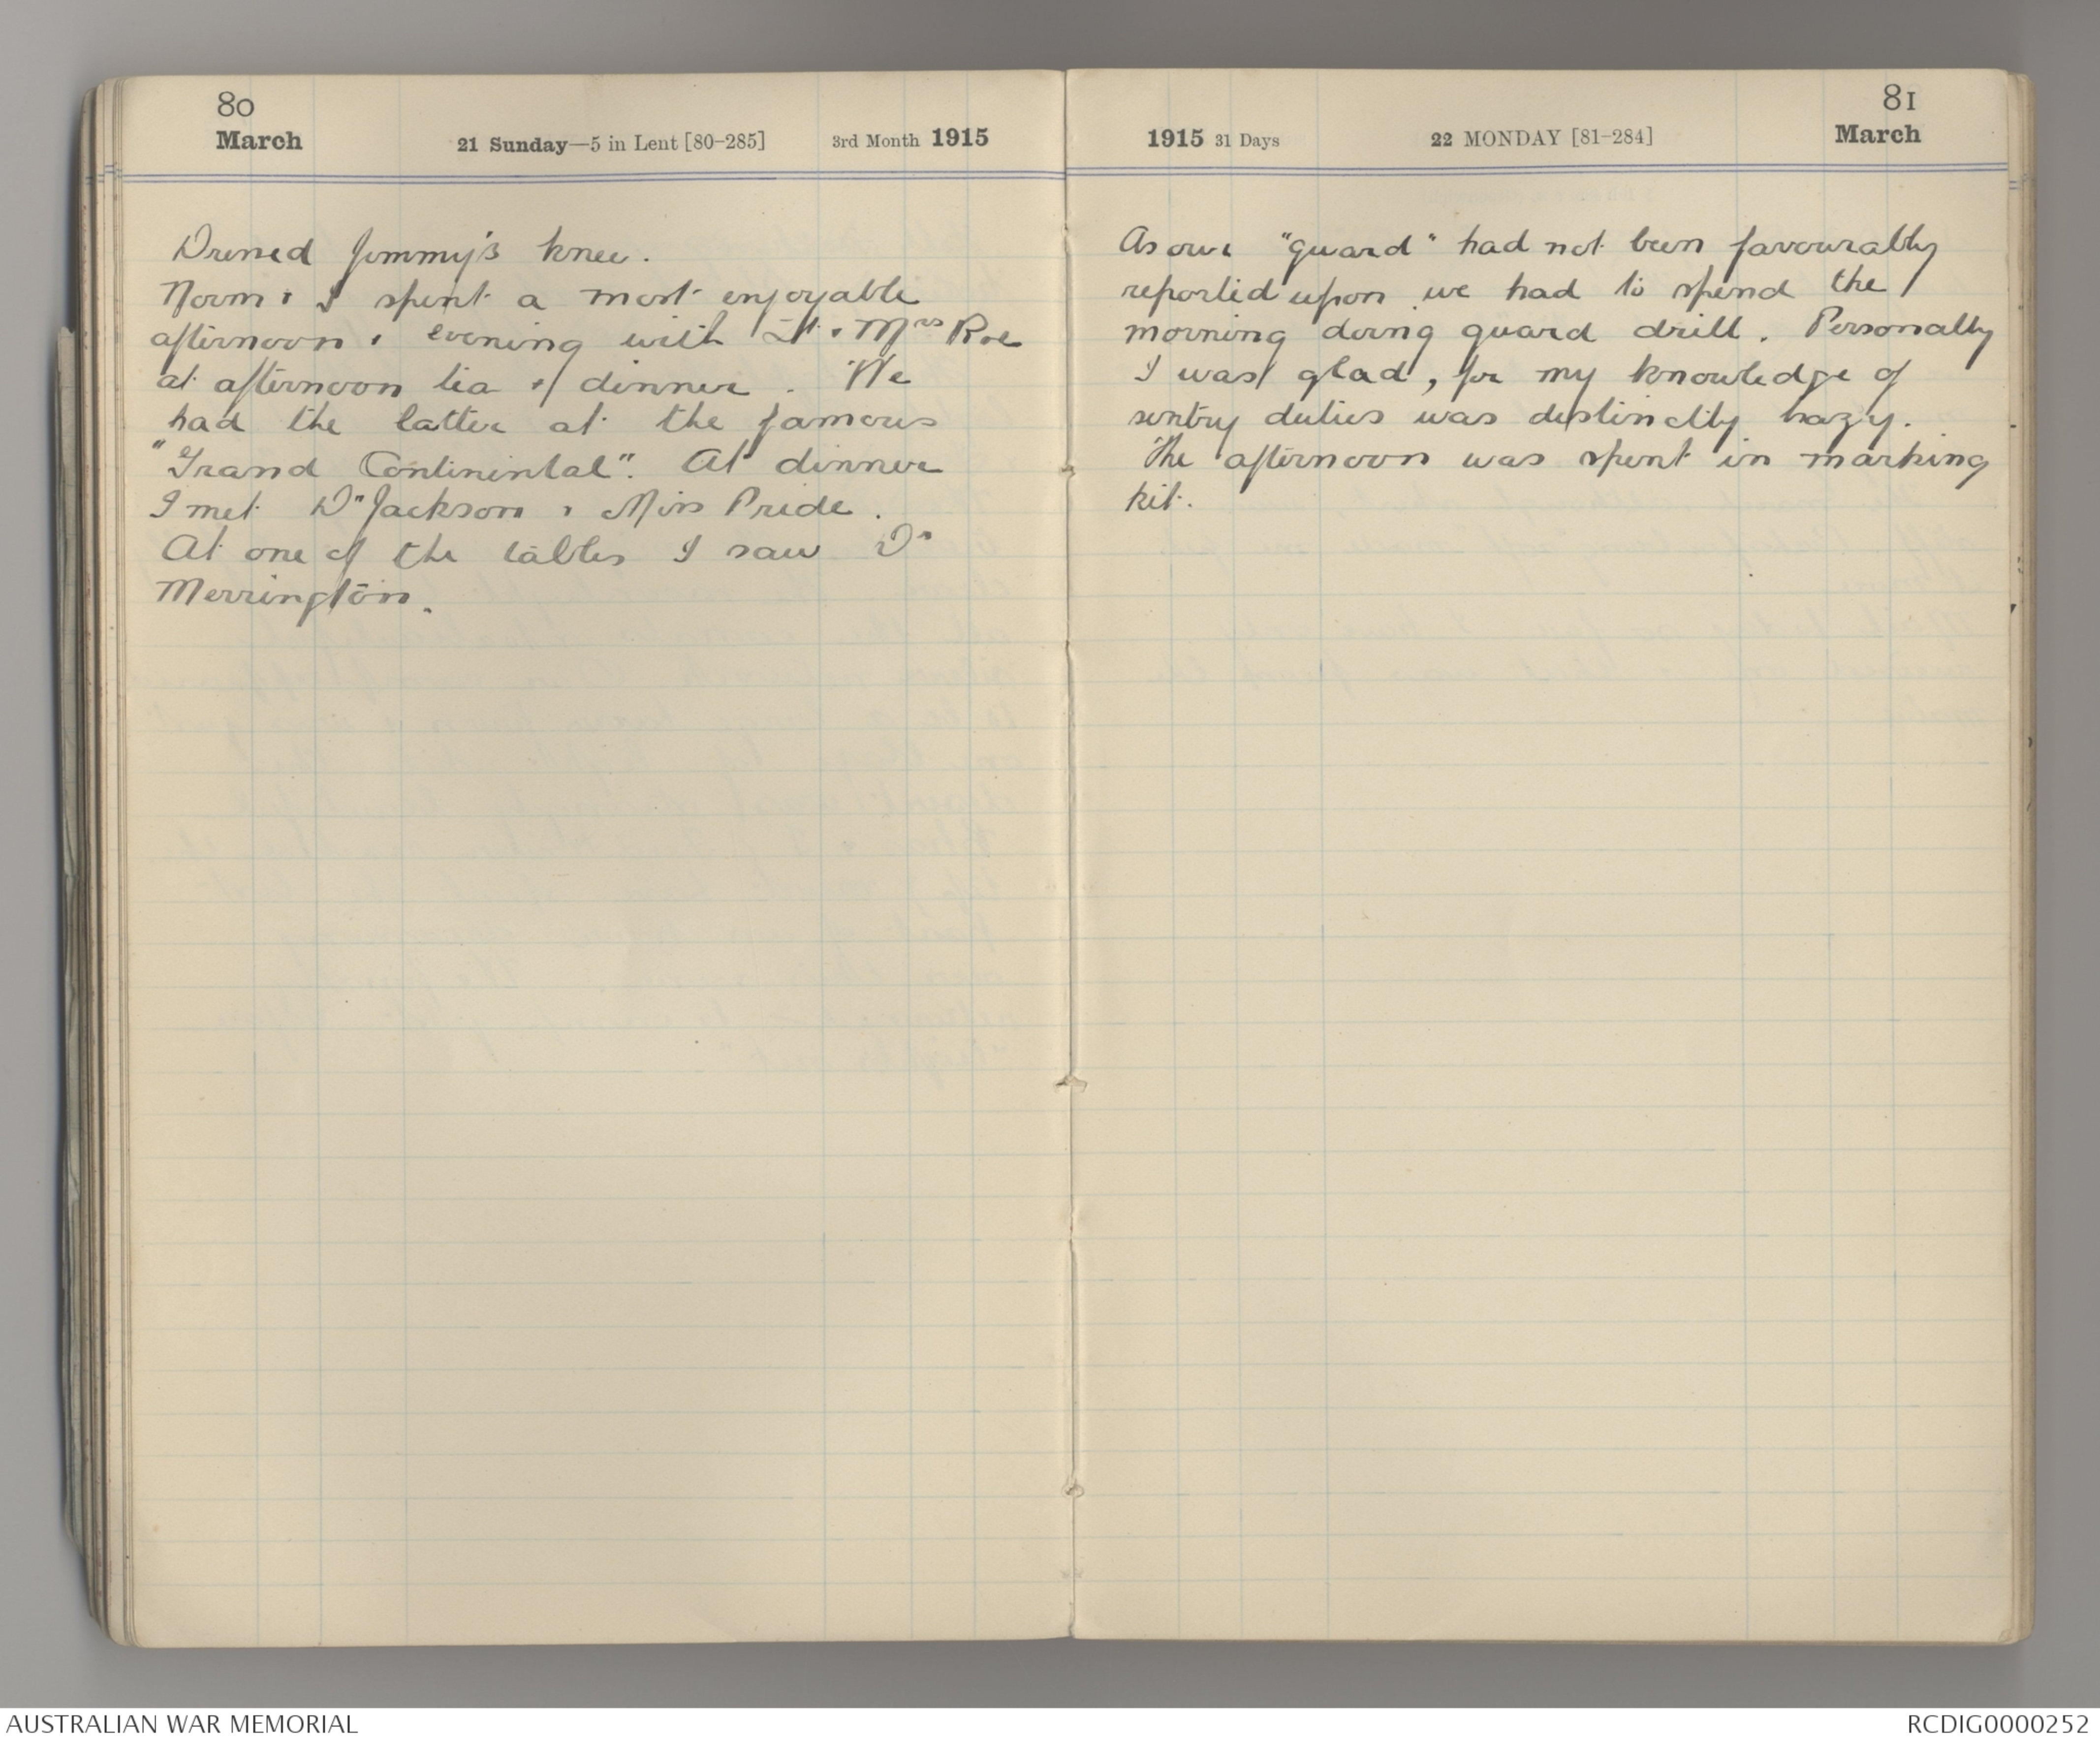 80
March
21 Sunday—5 in Lent [80-285]
3rd Month 1915
Dressed Jimmy's knee.
Norm & I spent a most enjoyable
afternoon & evening with Lt & Mrs Roe
at afternoon tea & dinner. We
had the latter at the famous
"Grand Continental". At dinner
I met Dr Jackson & Miss Pride.
At one of the tables I saw Dr
Merrington.
81
1915 31 Days
22 MONDAY [81-284]
March
As our "guard" had not been favourably
reported upon we had to spend the
morning doing guard drill. Personally
I was glad, for my knowledge of
sentry duties was distinctly hazy.
The afternoon was spent in marking
kit.
AUSTRALIAN WAR MEMORIAL
RCDIG0000252